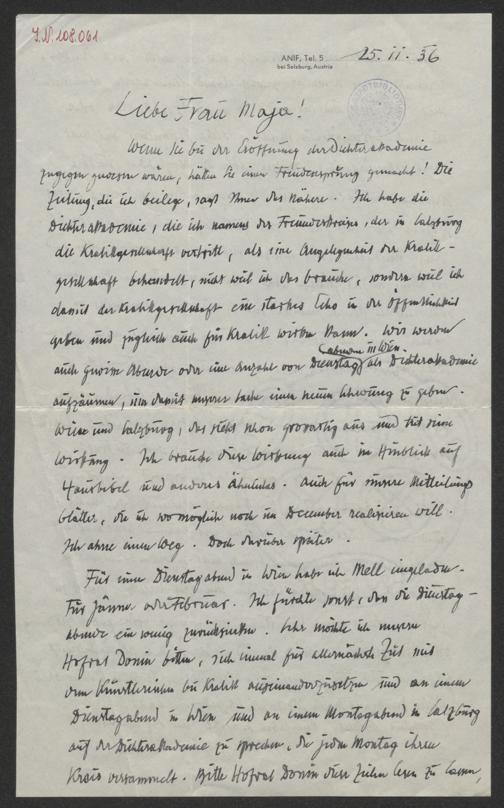 J.N. 108.061
ANIF, Tel. 5
bei Salzburg, Austria
25. 11. 36
Liebe Frau Maja!
Wenn Sie bei der Eröffnung der Dichterakademie
zugegen gewesen wären, hätten Sie einen Freudensprung gemacht! Die
Zeitung, die ich beilege, sagt Ihnen das Nähere. Ich habe die
Dichterakademie, die ich namens des Freundeskreises, der in Salzburg
die Kralikgesellschaft vertritt, als eine Angelegenheit der Kralik-
gesellschaft behandelt, nicht weil ich das brauche, sondern weil ich
damit der Kralikgesellschaft ein starkes Echo in der Öffentlichkeit
geben und zugleich auch für Kralik wirken kann. Wir werden
auch gewisse Abende oder eine Anzahl von Dienstagabenden in Wien als Dichterakademie
aufzäumen, um damit unserer Sache einen neuen Schwung zu geben.
Wien und Salzburg, das sieht schon grossartig aus und tut seine
Wirkung. Ich brauche diese Wirkung auch im Hinblick auf
Hausbibel und anderes Ähnliches. Auch für unsere Mitteilungs
blätter, die ich womöglich noch im December realisieren will.
Ich ahne einen Weg. Doch darüber später.
Für einen Dienstagabend in Wien habe ich Mell eingeladen.
Für Jänner oder Februar. Ich fürchte sonst, dass die Dienstag-
abende ein wenig zurücksinken. Sehr möchte ich unseren
Hofrat Donin bitten, sich einmal für allernächste Zeit mit
dem Künstlerischen bei Kralik auseinanderzusetzen und an einem
Dienstagabend in Wien und an einem Montagabend in Salzburg
auf der Dichterakademie zu sprechen, die jeden Montag ihren
Kreis versammelt. Bitte Hofrat Donin diese Zeilen lesen zu lassen,